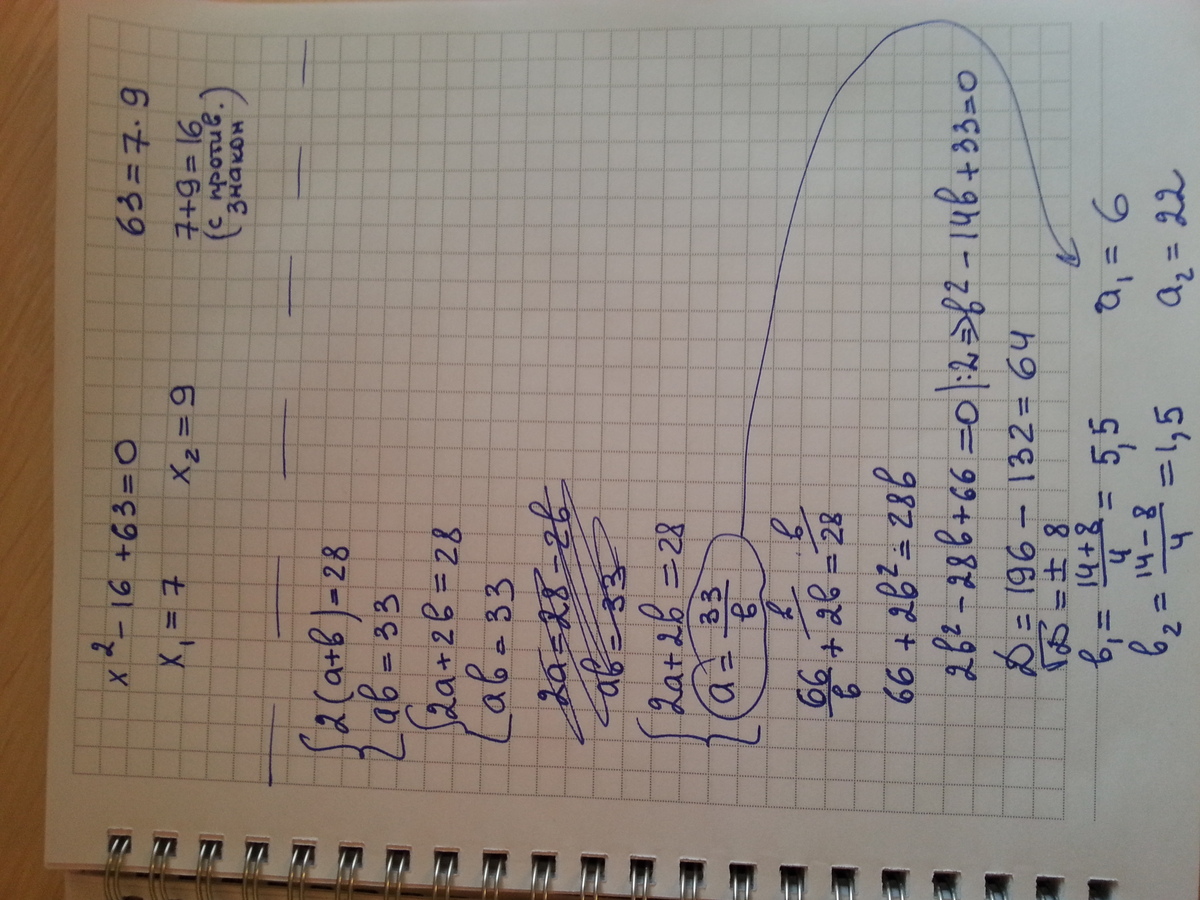 x² - 16 + 63 = 0
63 = 7 · 9
x₁ = 7
x₂ = 9
7 + 9 = 16
(с против.
знакон)
{ 2(a+b) = 28
ab = 33
{ 2a + 2b = 28
ab = 33
2a = 28 - 2b
ab = 33
{ 2a + 2b = 28
a = 33/b
66/b + 2b = 28
66 + 2b² = 28b
2b² - 28b + 66 = 0 |:2 => b² - 14b + 33 = 0
D = 196 - 132 = 64
√D = ± 8
b₁ = (14+8)/4 = 5,5
a₁ = 6
b₂ = (14-8)/4 = 1,5
a₂ = 22